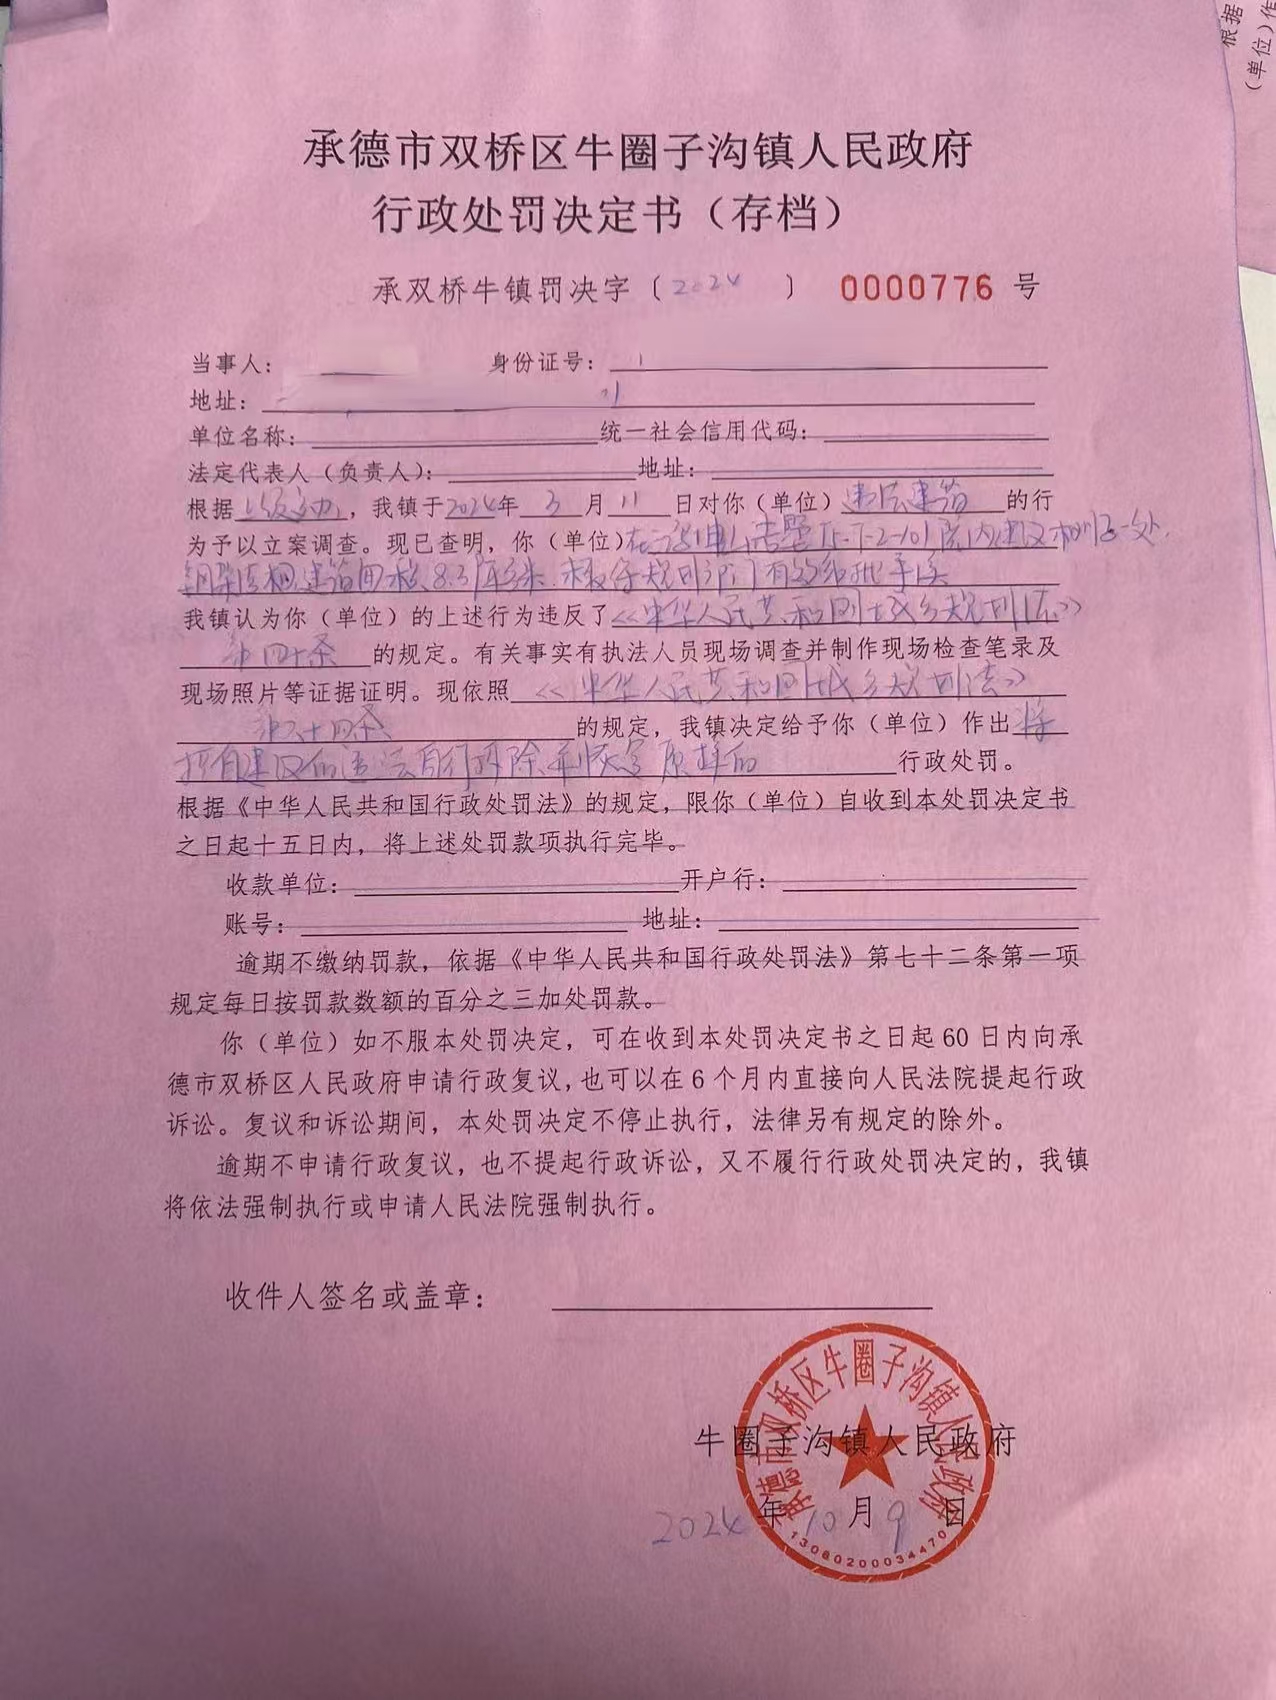 承德市双桥区牛圈子沟镇人民政府
行政处罚决定书（存档）
承双桥牛镇罚决字〔2024〕 0000776 号
当事人： 身份证号：
地址：
单位名称： 统一社会信用代码：
法定代表人（负责人）： 地址：
根据上级交办，我镇于2024年 3 月 11 日对你（单位）违法建筑 的行
为予以立案调查。现已查明，你（单位）在 15-7-2-101院内建设 一处
建筑面积8.3平方米 有效 审批手续
我镇认为你（单位）的上述行为违反了《中华人民共和国城乡规划法》
第四十条 的规定。有关事实有执法人员现场调查并制作现场检查笔录及
现场照片等证据证明。现依照《中华人民共和国城乡规划法》
第六十四条 的规定，我镇决定给予你（单位）作出将
所自建设的违法自行拆除并恢复原样的 行政处罚。
根据《中华人民共和国行政处罚法》的规定，限你（单位）自收到本处罚决定书
之日起十五日内，将上述处罚款项执行完毕。
收款单位： 开户行：
账号： 地址：
逾期不缴纳罚款，依据《中华人民共和国行政处罚法》第七十二条第一项
规定每日按罚款数额的百分之三加处罚款。
你（单位）如不服本处罚决定，可在收到本处罚决定书之日起 60 日内向承
德市双桥区人民政府申请行政复议，也可以在 6 个月内直接向人民法院提起行政
诉讼。复议和诉讼期间，本处罚决定不停止执行，法律另有规定的除外。
逾期不申请行政复议，也不提起行政诉讼，又不履行行政处罚决定的，我镇
将依法强制执行或申请人民法院强制执行。
收件人签名或盖章：
承德市双桥区牛圈子沟镇人民政府
牛圈子沟镇人民政府
2024 年 10 月 9 日
1308020003447​0
根据
（单位）作